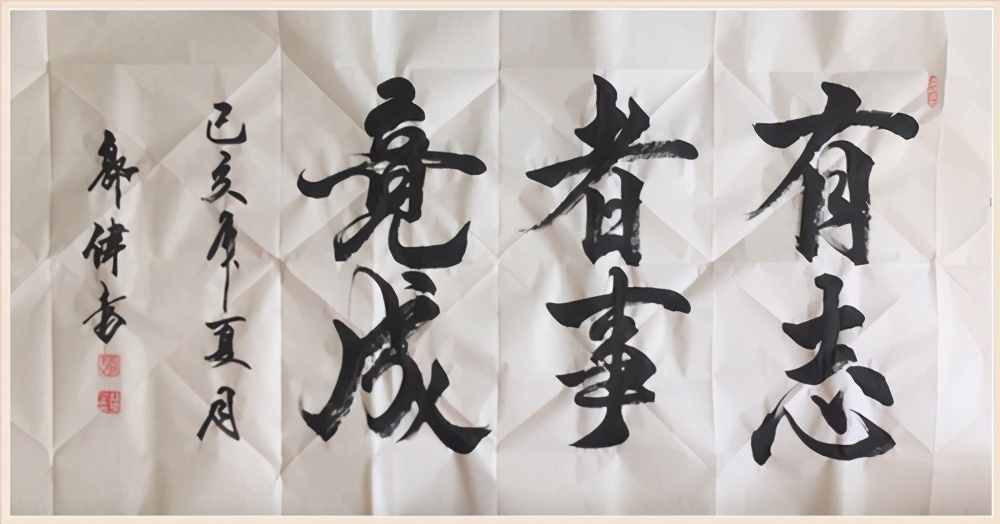 有志
者事
竟成
己亥年夏月
郭伟书